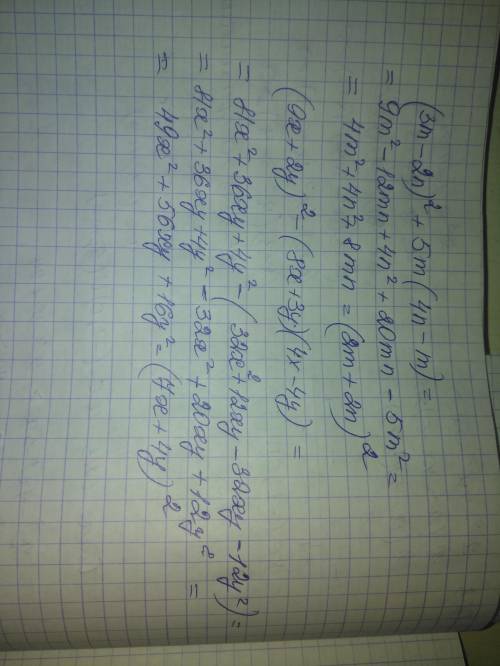 (3m-2n)² + 5m(4n-m) =
= 9m² - 12mn + 4n² + 20mn - 5m² =
= 4m² + 4n² + 8mn = (2m+2n)²
(9x+2y)² - (8x+3y)(4x-4y) =
= 81x² + 36xy + 4y² - (32x² + 12xy - 32xy - 12y²) =
= 81x² + 36xy + 4y² - 32x² + 20xy + 12y² =
= 49x² + 56xy + 16y² = (7x+4y)²